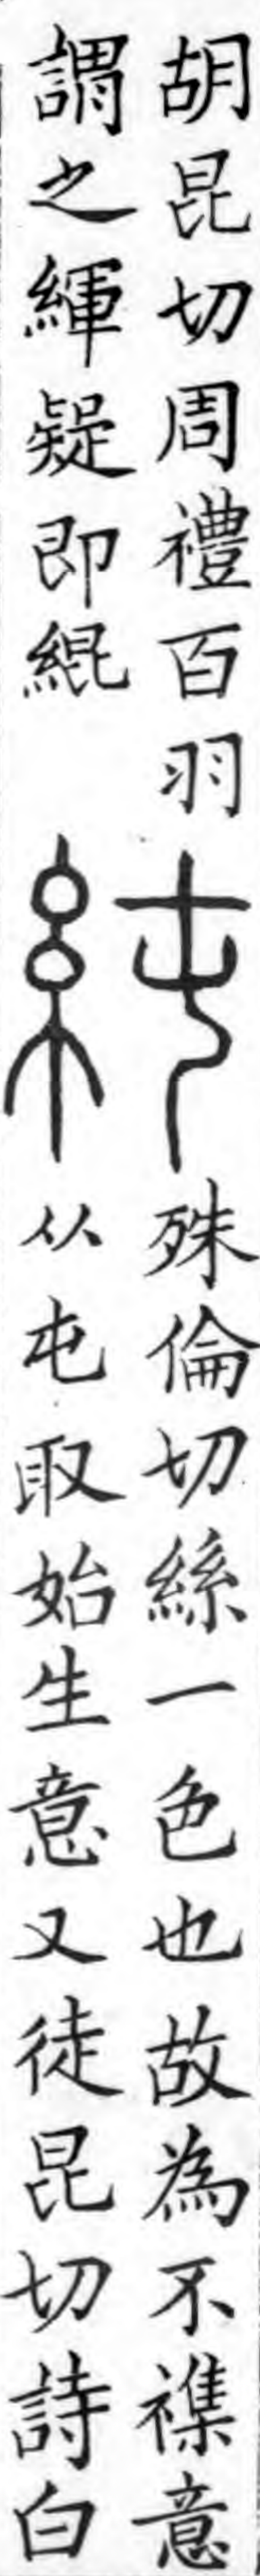 胡昆切周禮百羽
謂之緷疑即緄
純
殊倫切絲一色也故為不襍意
从屯取始生意又徒昆切詩白